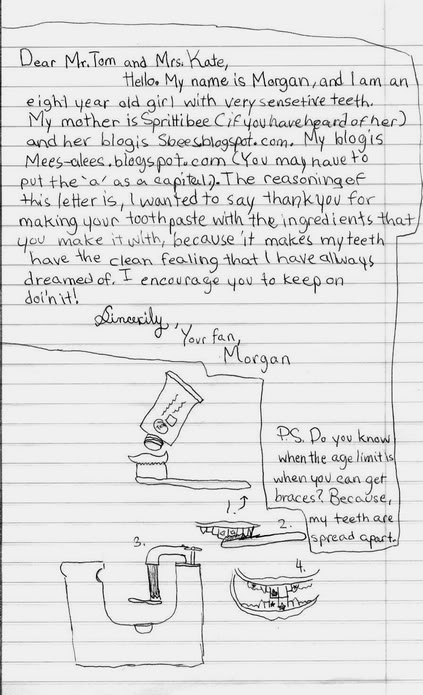 Dear Mr. Tom and Mrs. Kate,
Hello. My name is Morgan, and I am an
eight year old girl with very sensetive teeth.
My mother is Sprittibee (if you have heard of her)
and her blog is Sbees.blogspot.com. My blog is
Mees-alees.blogspot.com (You may have to
put the 'a' as a capital,). The reasoning of
this letter is, I wanted to say thank you for
making your toothpaste with the ingredients that
you make it with, because it makes my teeth
have the clean fealing that I have always
dreamed of. I encourage you to keep on
doin' it!
Sincerily,
Your fan,
Morgan
P.S. Do you know
when the age limit is
when you can get
braces? Because,
my teeth are
spread apart.
1.
2.
3.
4.